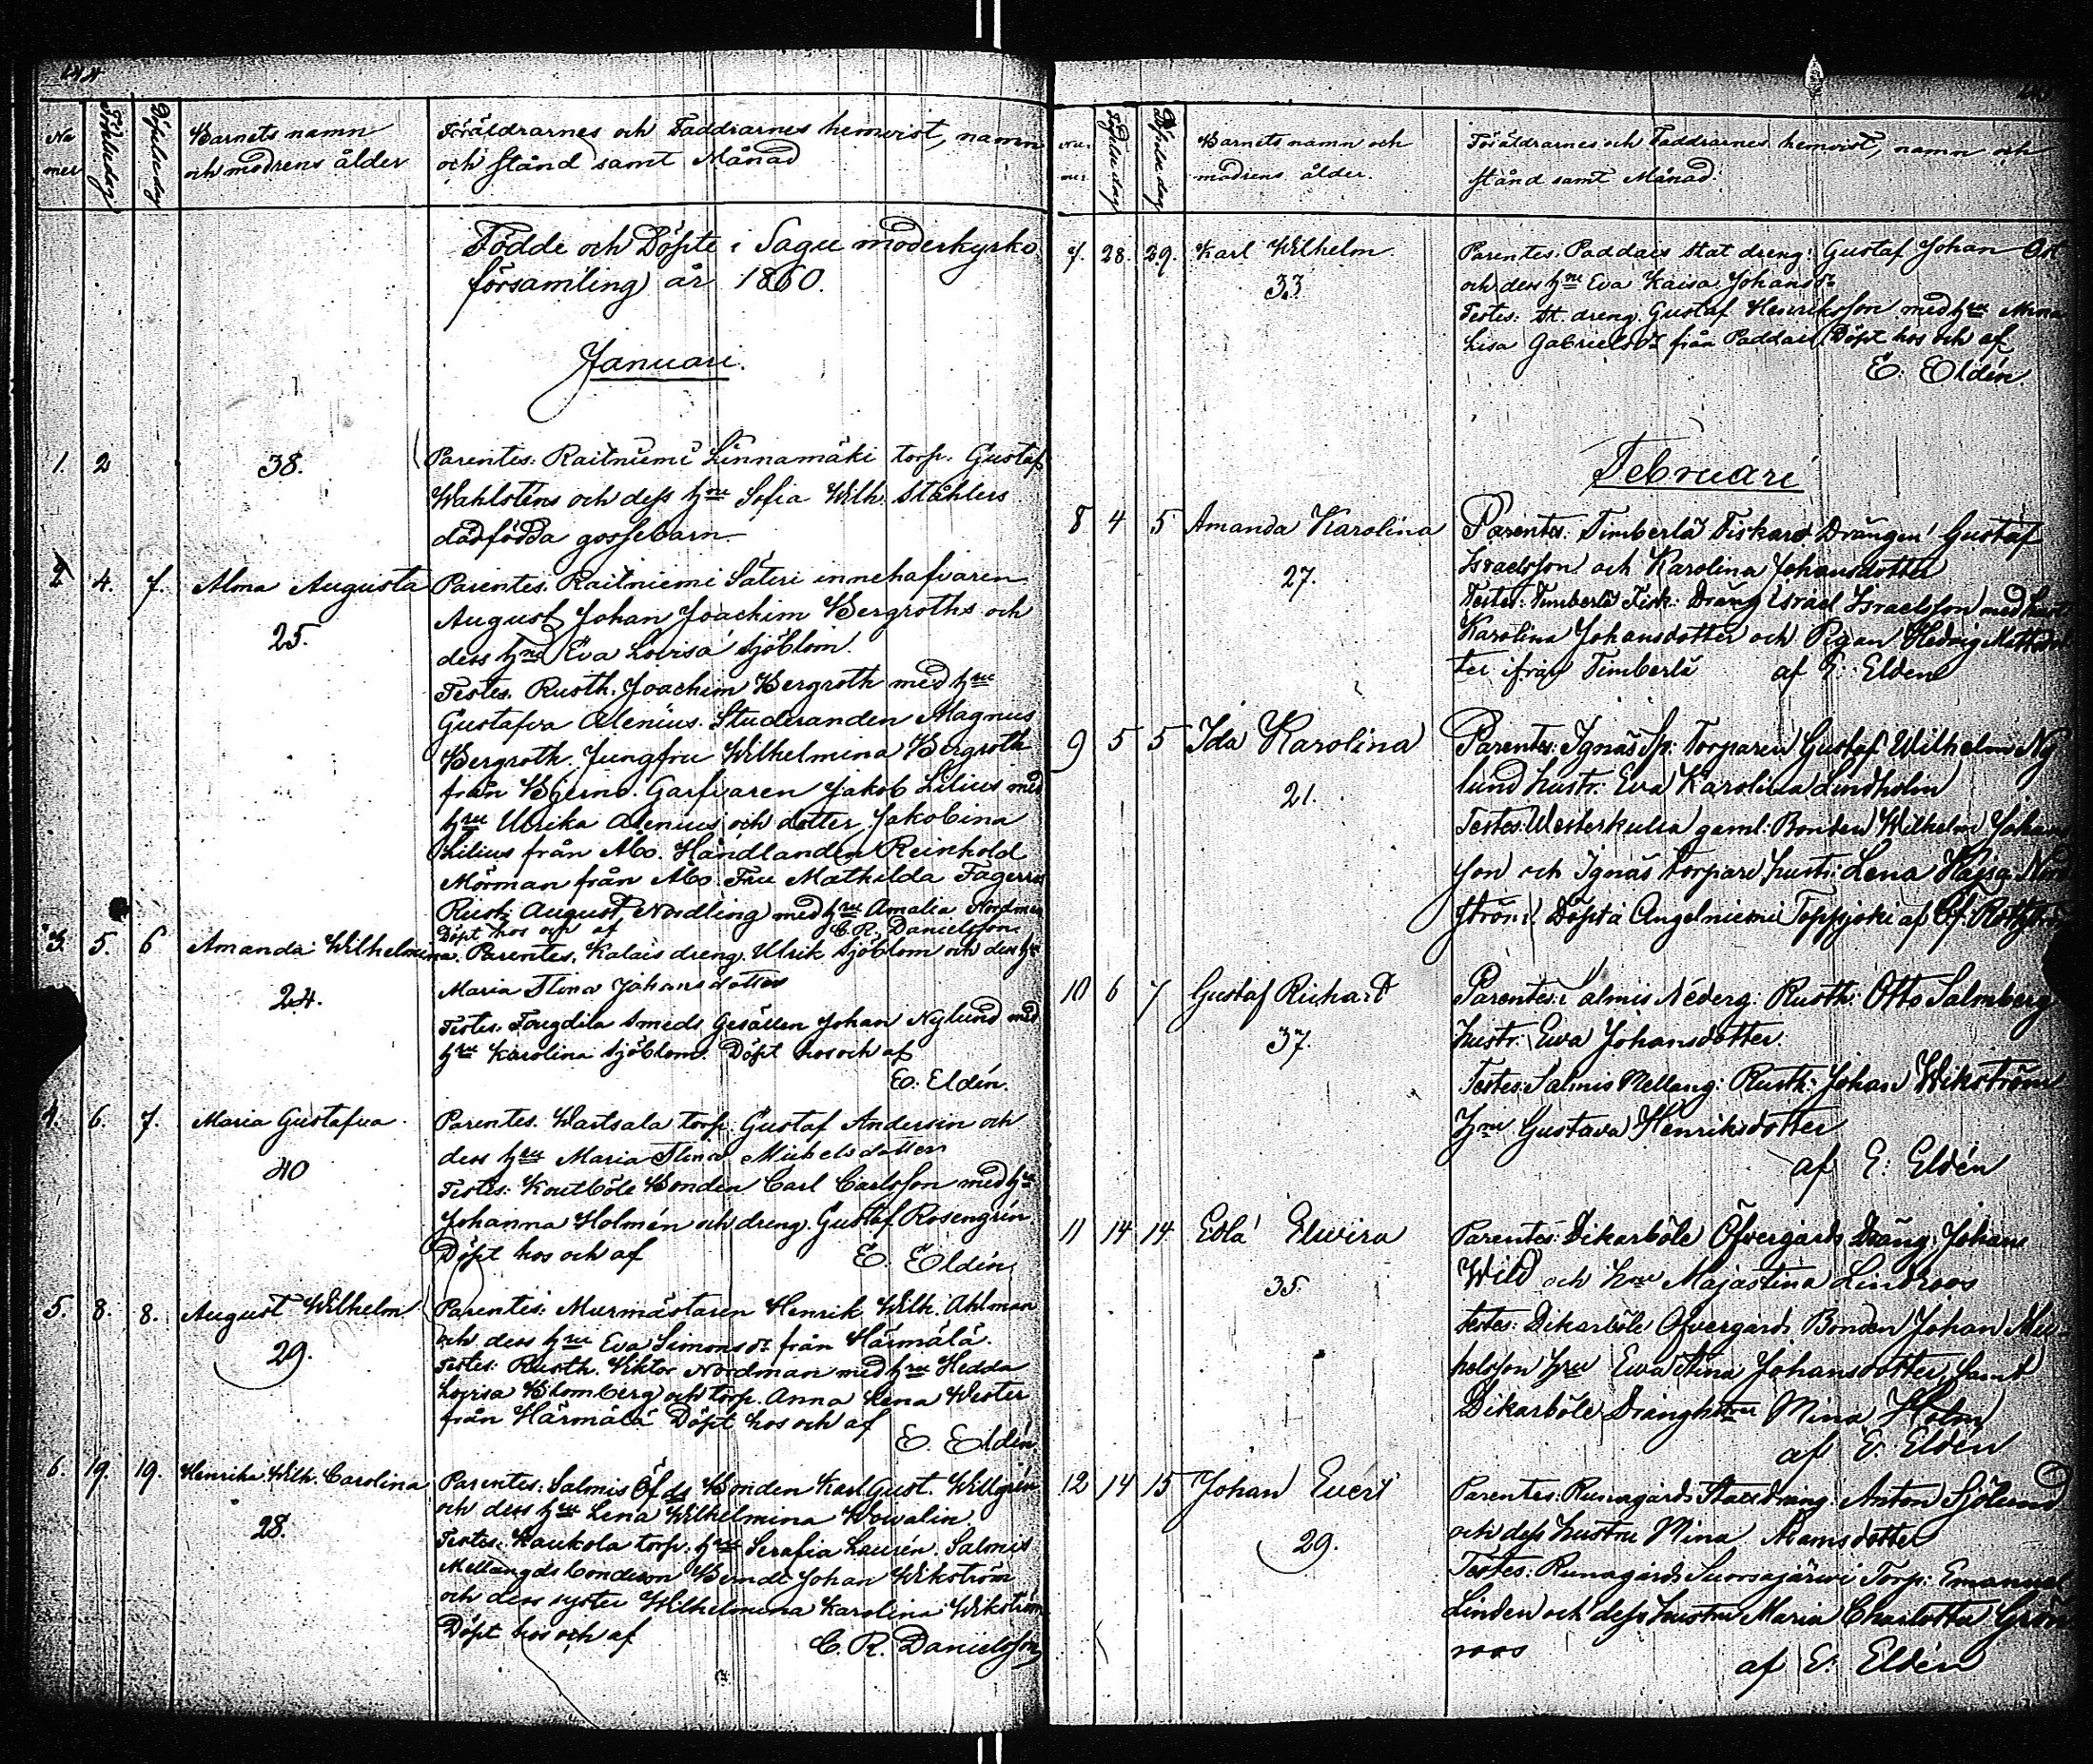 Nu
mer
Födelsedag
Döpelsedag
Barnets namn
och modrens ålder
Föräldrarnes och Faddrarnes hemvist, namn
och stånd samt Månad
Födde och Döpte i Sagu moderkyrko
församling år 1860.
Januari.
1. 2 38. Parentes: Raitniemi Linnamäki torp. Gustaf
Wahlsténs och dess hru Sofia Wilh. Ståhlers
dödfödda gossebarn
2 4. 7. Alma Augusta Parentes. Raitniemi Säteri innehafvaren
25. August Johan Joachim Bergroths och
dess hru Eva Lovisa Sjöblom.
Testes. Rusth. Joachim Bergroth med hru
Gustafva Alenius. Studeranden Magnus
Bergroth. Jungfru Wilhelmina Bergroth
från Bjerno. Garfvaren Jakob Lilius med
hru Ulrika Alenius och dotter Jakobina
Lilius från Åbo. Handlanden Reinhold
Mörman från Åbo. Fru Mathilda
Rusth. August Nordling med hru Amalia
Döpt hos och af C. R. Danielsson
3. 5. 6 Amanda Wilhelmina. Parentes. Kalais dreng. Ulrik Sjöblom och dess hru
24. Maria Stina Johansdotter
Testes. Fougdila Smeds Gesällen Johan Nylund med
hru Karolina Sjöblom. Döpt hos och af
E. Eldén.
4. 6. 7. Maria Gustafva. Parentes. Wartsala torp. Gustaf Andersin och
40 dess hru Maria Stina Michelsdotter
Testes: Koutböle Bonden Carl Carlsson med hru
Johanna Holmén och dreng. Gustaf Rosengrén.
Döpt hos och af E. Eldén
5. 8. 8. August Wilhelm. Parentes: Murmästaren Henrik Wilh. Ahlman
29. och dess hru Eva Simonsdr från Härmälä.
Testes: Rusth. Viktor Nordman med hru Hedda
Lovisa Blomberg och torp. Anna Lena Wester
från Härmälä Döpt hos och af
E. Eldén.
6. 19. 19. Henrika Wilh. Carolina Parentes: Salmis Öfgds Bonden Karl Gust. Willgrén
28. och dess hru Lena Wilhelmina Wowalin.
Testes: Kaukola torp. hru Serafia Laurén. Salmis
Mellangds bondeson Berndt Johan Wikström
och dess syster Wilhelmina Karolina Wikström
Döpt hos och af C. R. Danielsson
Nu
mer
Födelsedag
Döpelsedag
Barnets namn och
modrens ålder.
Föräldrarnes och Faddrarnes hemvist, namn och
stånd samt Månad.
7. 28. 29. Karl Wilhelm. Parentes. Paddais stat dreng: Gustaf Johan
33. och dess hru Eva Kaisa Johansdr
Testes: St. dreng. Gustaf Henriksson med hru Anna
Lisa Gabrielsdr från Paddais Döpt hos och af
E. Eldén.
Februari
8 4 5 Amanda Karolina Parentes: Timberlä Fiskars Drängen Gustaf
27. Israelsson och Karolina Johansdotter
Testes: Timberlä Fisk: Dräng Israel Israelsson med hustr
Karolina Johansdotter och Pigan Hedvig
ter ifrån Timberlä af E: Eldén
9 5 5 Ida Karolina Parentes: Ignäs Torparen Gustaf Wilhelm Ny
21. lund hustr: Eva Karolina Lindholm
Testes: Westerkulla gaml: Bonden Wilhelm Johans
son och Ignäs Torpare hustr: Lena Kajsa Nord
ström. Döpt i Angelniemi af
10 6 7 Gustaf Richard Parentes: Salmis Nederg: Rusth: Otto Salmberg
37. hustr: Ewa Johansdotter.
Testes: Salmis Mellang: Rusth: Johan Wikström
Hru Gustava Henriksdotter
af E: Eldén
11 14 14 Edla Elwira Parentes: Dikarböle Öfvergårds Dräng Johan
35. Wild och hru Majastina Lindroos
Testes: Dikarböle Öfvergårds Bonden Johan Mic-
helsson hru Ewa Stina Johansdotter, samt
Dikarböle Dränghstru Mina Holm
af E: Eldén
12 14 15 Johan Evert Parentes: Runagårds Statdräng: Anton Sjölund
29. och dess hustru Mina Adamsdotter
Testes: Runagårds Suorsajärwi Torp: Emanuel
Linden och dess hustru Maria Charlotta Grön
roos
af E: Eldén